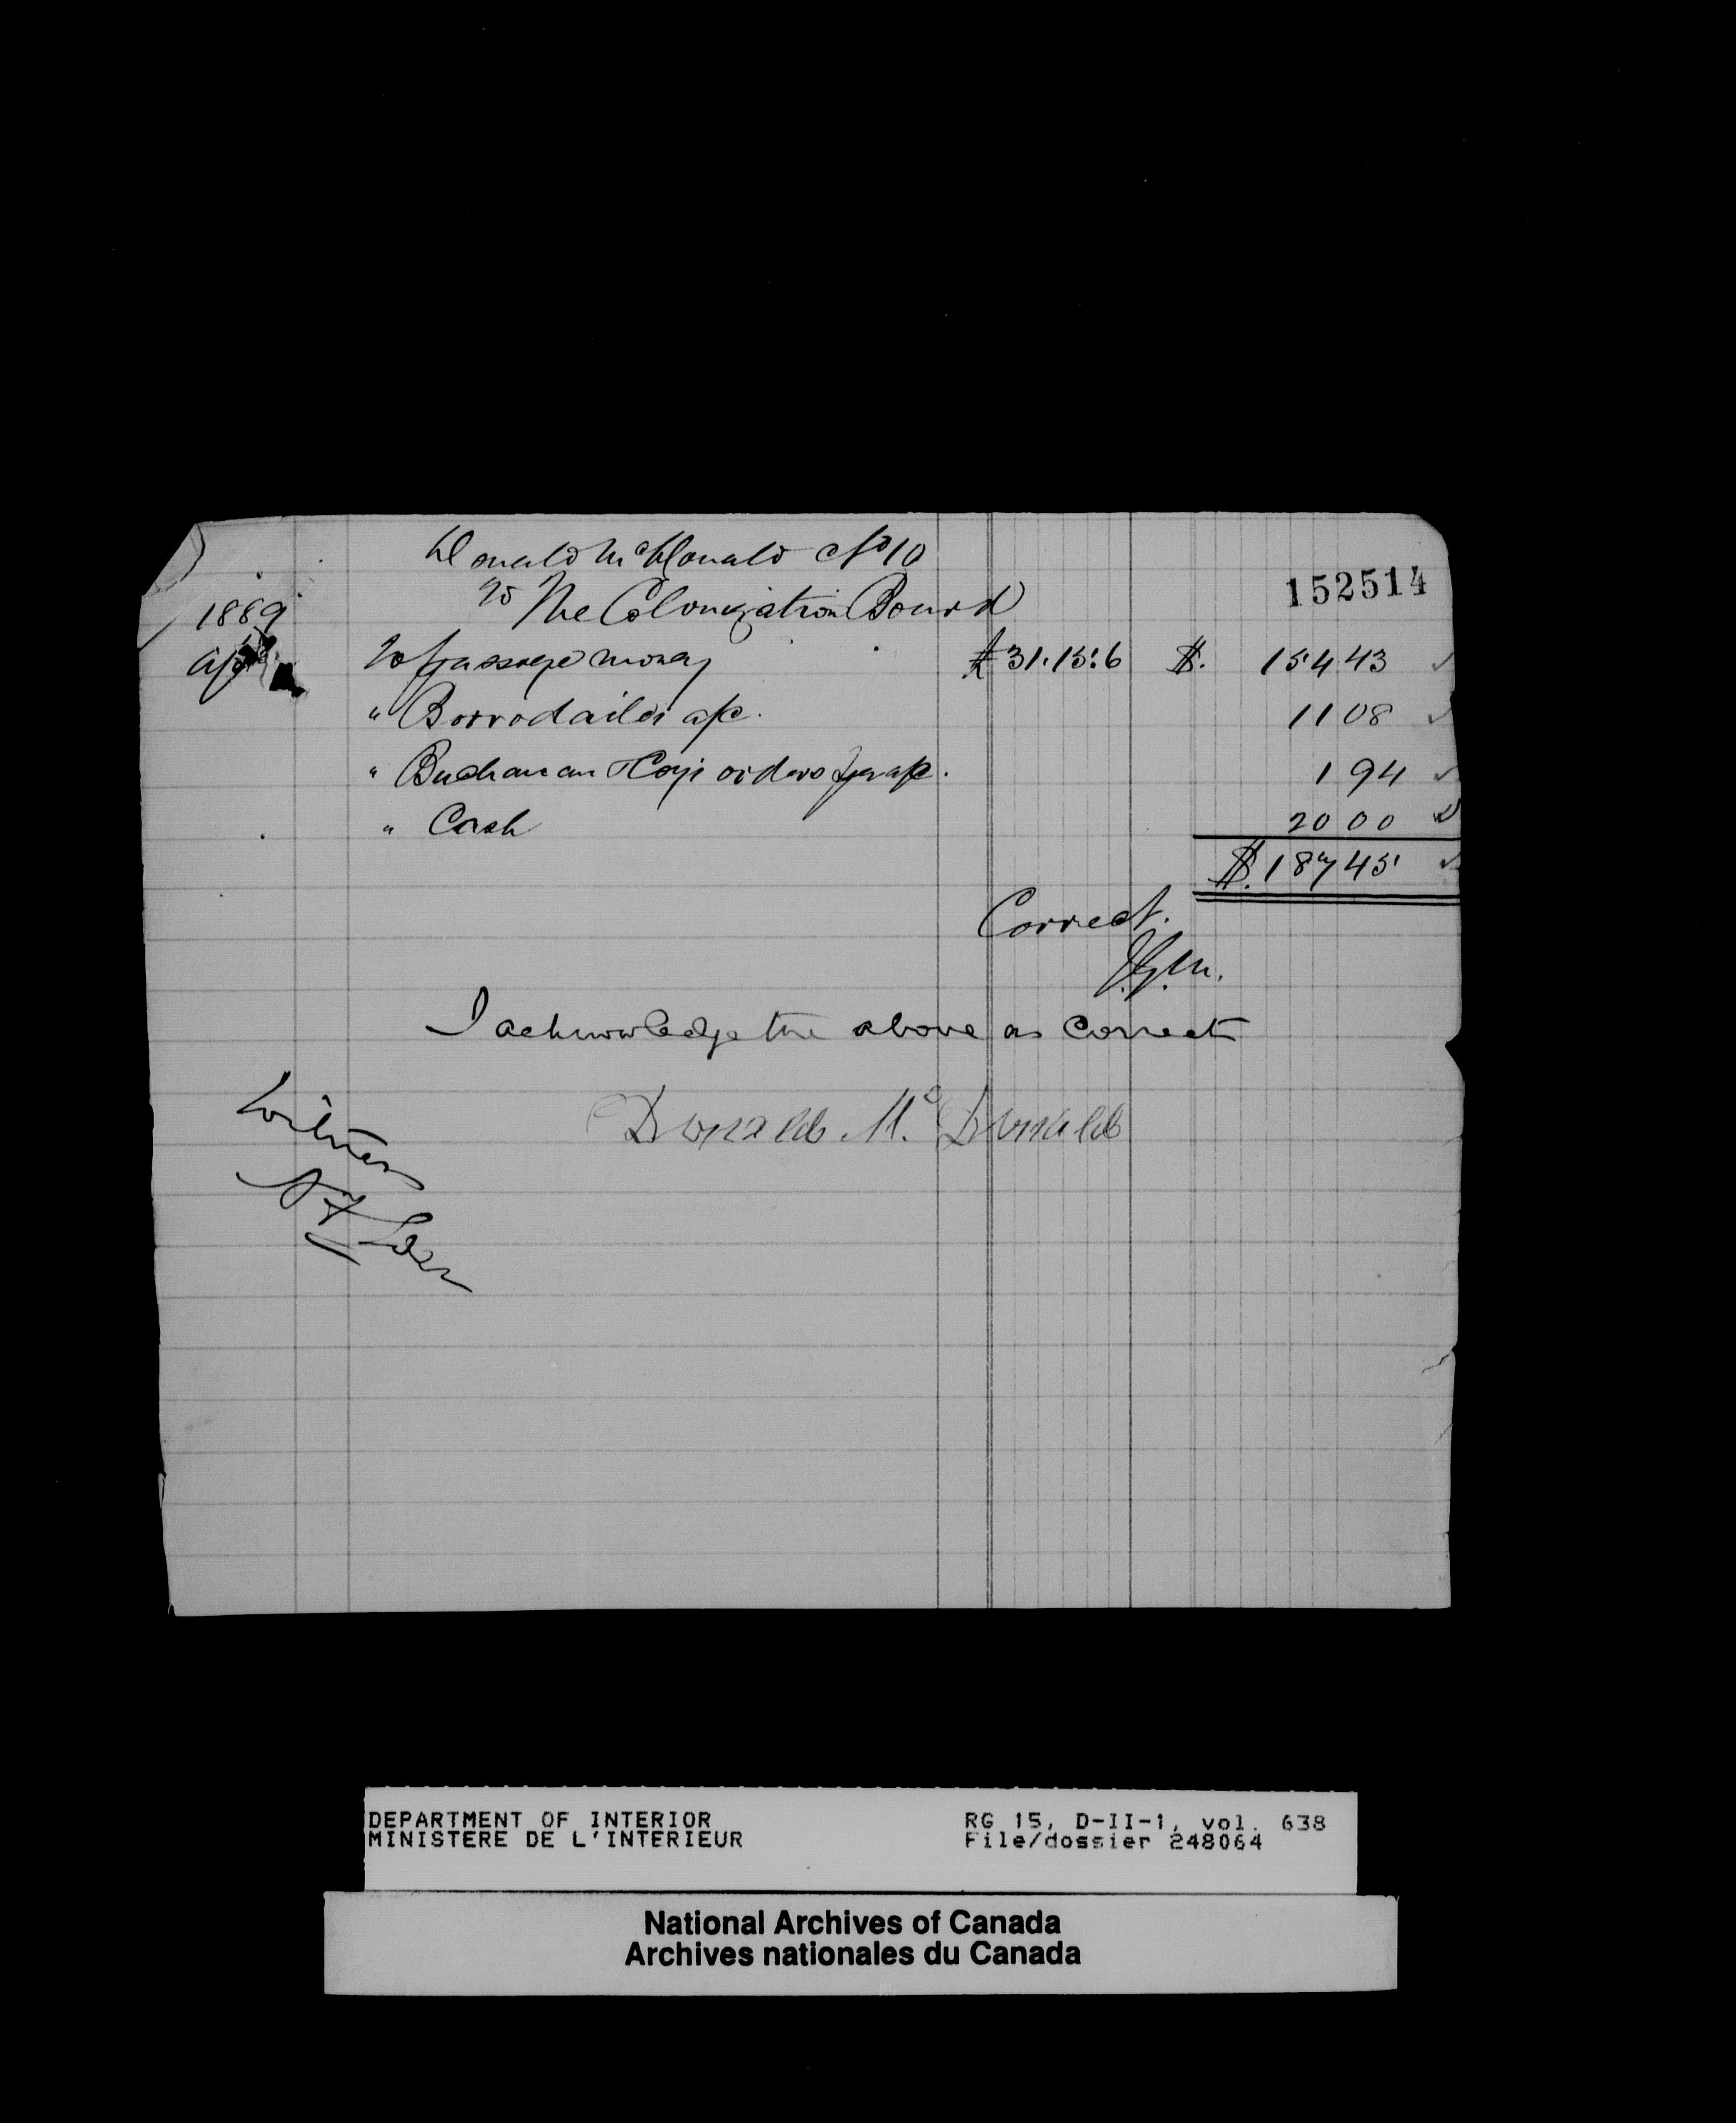 Donald McDonald No 10
152514
To The Colonization Board
1889
To passage money £31.15.6 $. 154 43
" Borrodailes a/c. 11 08
" Buchanan orders per a/c. 1 94
" Cash 20 00
$. 187 45
Correct.
I acknowledge the above as Correct
Donald Mc Donald
Witness
DEPARTMENT OF INTERIOR RG 15, D-II-1, vol. 638
MINISTERE DE L'INTERIEUR File/dossier 248064
National Archives of Canada
Archives nationales du Canada